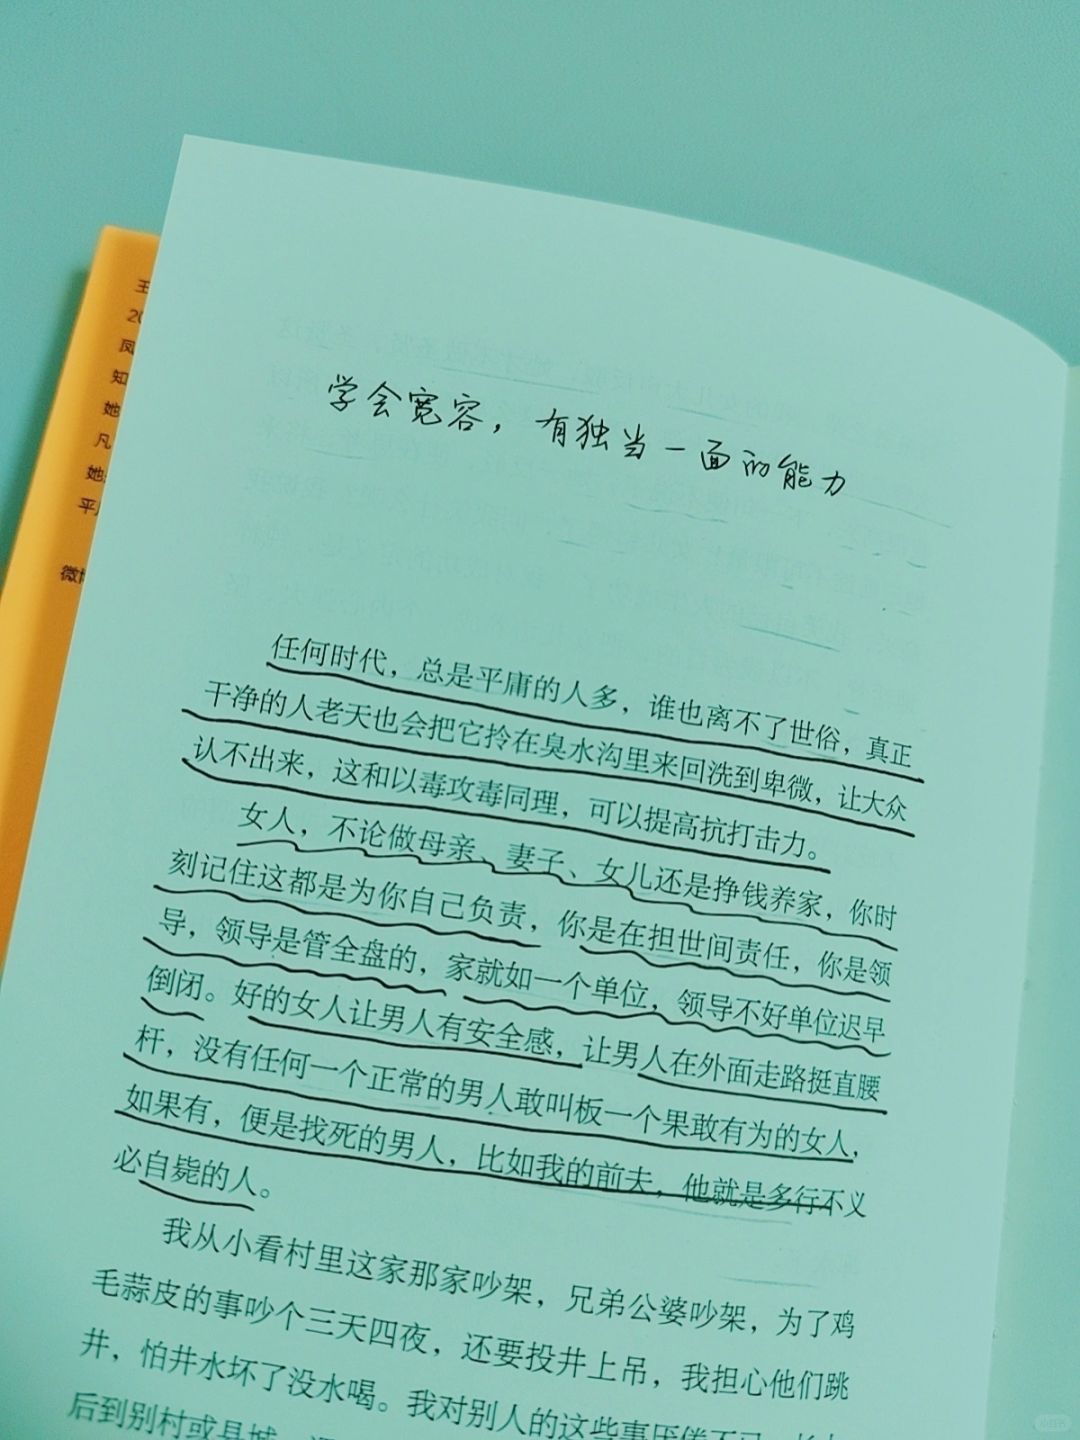 王
20
凤
知
她
凡
她
平
微博
学会宽容，有独当一面的能力
任何时代，总是平庸的人多，谁也离不了世俗，真正
干净的人老天也会把它拎在臭水沟里来回洗到卑微，让大众
认不出来，这和以毒攻毒同理，可以提高抗打击力。
女人，不论做母亲、妻子、女儿还是挣钱养家，你时
刻记住这都是为你自己负责，你是在担世间责任，你是领
导，领导是管全盘的，家就如一个单位，领导不好单位迟早
倒闭。好的女人让男人有安全感，让男人在外面走路挺直腰
杆，没有任何一个正常的男人敢叫板一个果敢有为的女人，
如果有，便是找死的男人，比如我的前夫，他就是多行不义
必自毙的人。
我从小看村里这家那家吵架，兄弟公婆吵架，为了鸡
毛蒜皮的事吵个三天四夜，还要投井上吊，我担心他们跳
井，怕井水坏了没水喝。我对别人的这些事厌倦不已
后到别村或县城
小红书